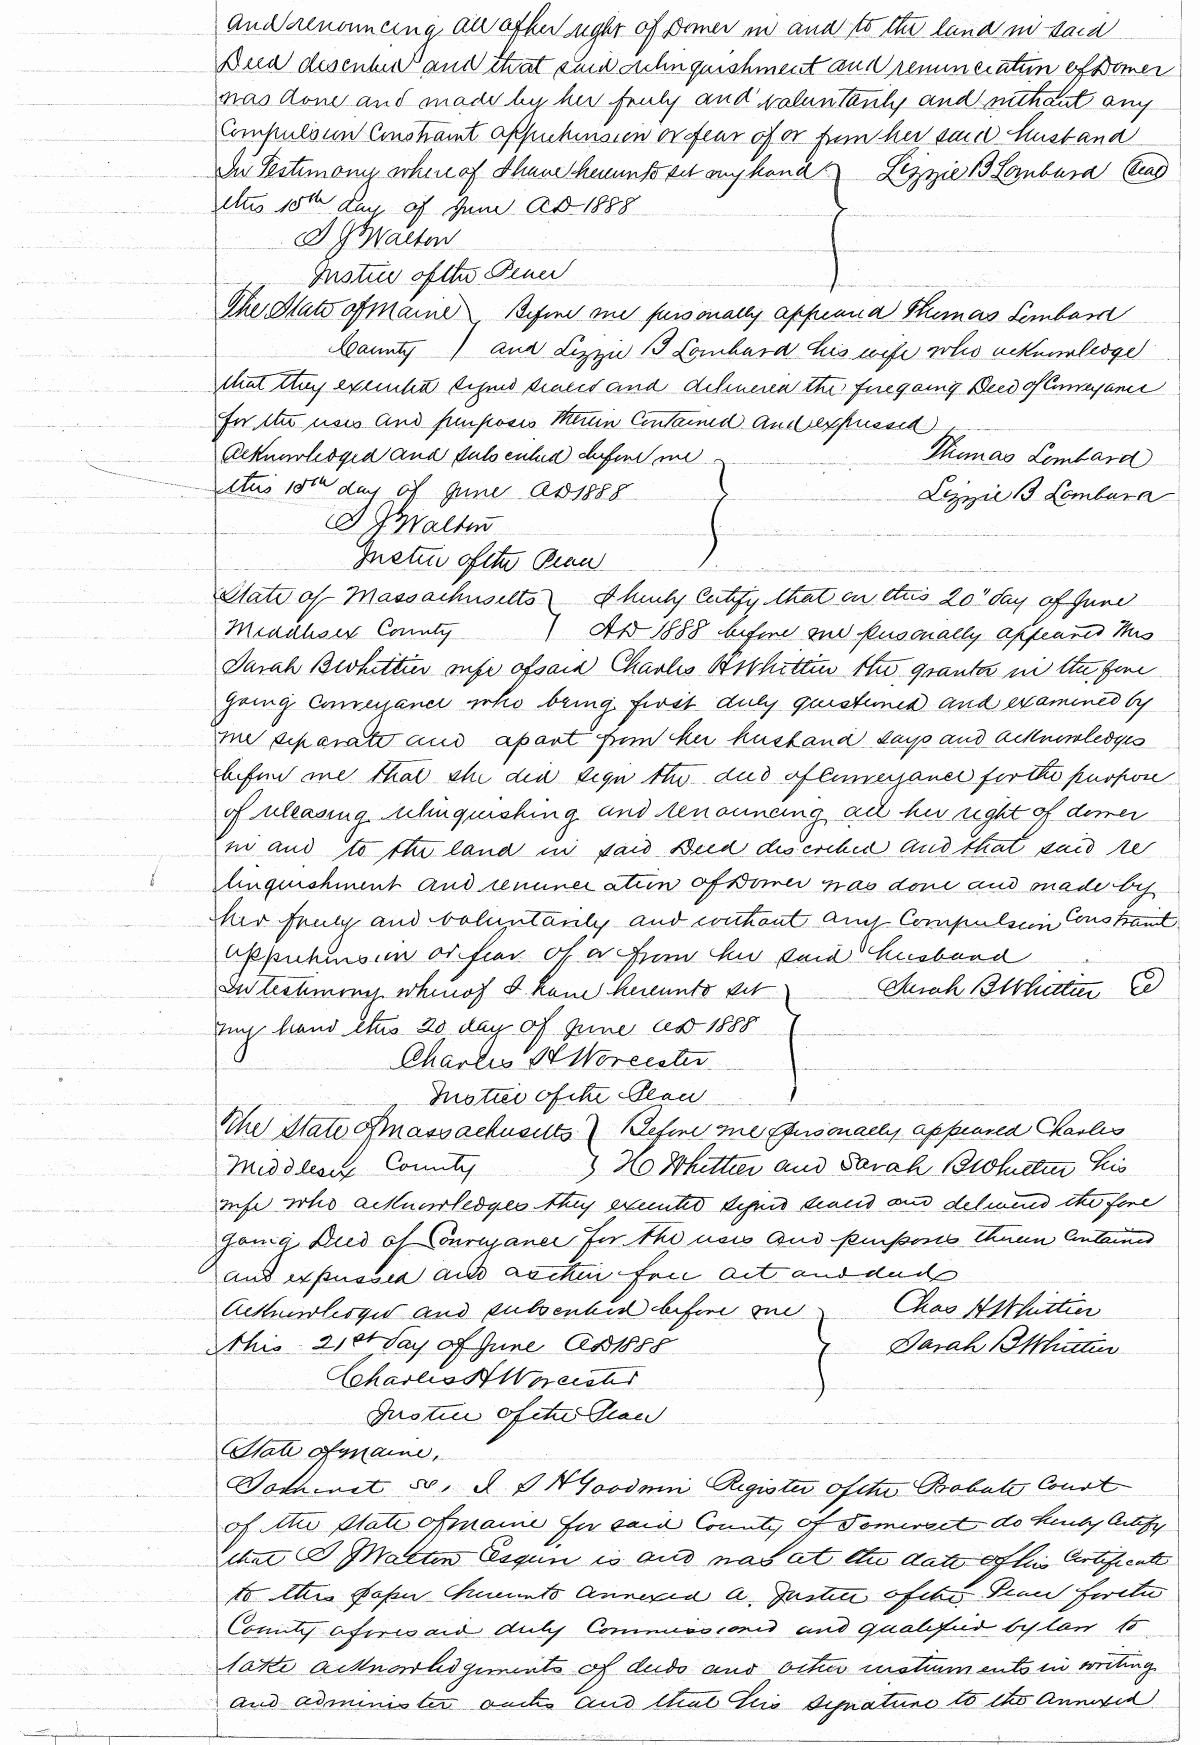 and renouncing all of her right of Dower in and to the land in said
Deed described and that said relinquishment and renunciation of Dower
was done and made by her freely and voluntarily and without any
Compulsion Constraint apprehension or fear of or from her said husband
In Testimony where of I have hereunto set my hand } Lizzie B Lombard (Seal)
this 15th day of June AD 1888
S J Walton
Justice of the Peace
The State of Maine } Before me personally appeared Thomas Lombard
County } and Lizzie B Lombard his wife who acknowledge
that they executed signed sealed and delivered the foregoing Deed of Conveyance
for the uses and purposes therein Contained and expressed
Acknowledged and subscribed before me } Thomas Lombard
this 15th day of June AD 1888 Lizzie B Lombard
S J Walton
Justice of the Peace
State of Massachusetts } I hereby Certify that on this 20" day of June
Middlesex County } AD 1888 before me personally appeared Mrs
Sarah B Whittier wife of said Charles H Whittier the grantor in the fore
going Conveyance who being first duly questioned and examined by
me separate and apart from her husband says and acknowledges
before me that she did sign the deed of Conveyance for the purpose
of releasing relinquishing and renouncing all her right of dower
in and to the land in said Deed described and that said re
linquishment and renunciation of Dower was done and made by
her freely and voluntarily and without any Compulsion Constraint
apprehension or fear of or from her said husband
In testimony whereof I have hereunto set } Sarah B Whittier
my hand this 20 day of June AD 1888
Charles H Worcester
Justice of the Peace
The State of Massachusetts } Before me personally appeared Charles
Middlesex County } H Whittier and Sarah B Whittier his
wife who acknowledges they executed signed sealed and delivered the fore
going Deed of Conveyance for the uses and purposes therein Contained
and expressed and as their free act and deed
Acknowledged and subscribed before me } Chas H Whittier
this 21st day of June AD 1888 Sarah B Whittier
Charles H Worcester
Justice of the Peace
State of Maine.
Somerset ss. I S H Goodwin Register of the Probate Court
of the State of Maine for said County of Somerset do hereby Certify
that S J Walton Esquire is and was at the date of his Certificate
to this paper hereunto annexed a. Justice of the Peace for the
County aforesaid duly Commissioned and qualified by law to
take acknowledgements of deeds and other instruments in writing
and administer oaths and that his signature to the annexed